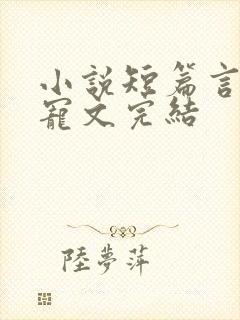 小說短篇言
寵文完結
陸夢萍